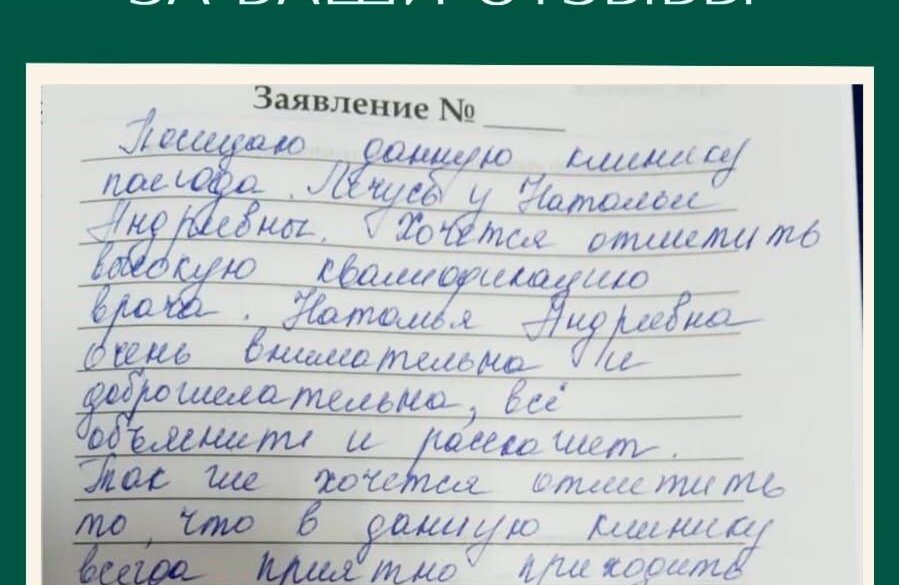 ЗА ВАШИ ОТЗЫВЫ
Заявление №
Посещаю данную клинику
полгода. Лечусь у Натальи
Андреевны. Хочется отметить
высокую квалификацию
врача. Наталья Андреевна
очень внимательна и
доброжелательна, всё
объяснит и расскажет.
Так же хочется отметить
то, что в данную клинику
всегда приятно приходить